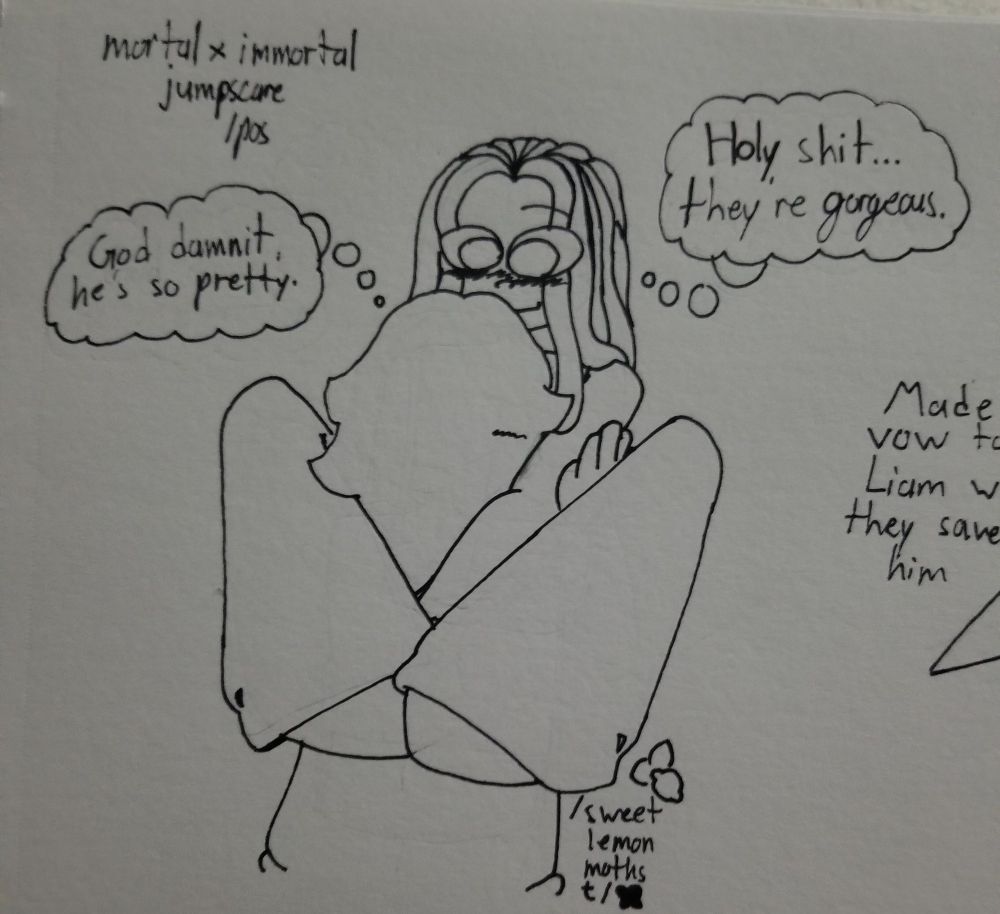 mortal x immortal
jumpscare
/pos
God damnit,
he's so pretty.
Holy shit...
they're gorgeous.
Made
vow to
Liam w
they save
him
/sweet
lemon
moths
t/